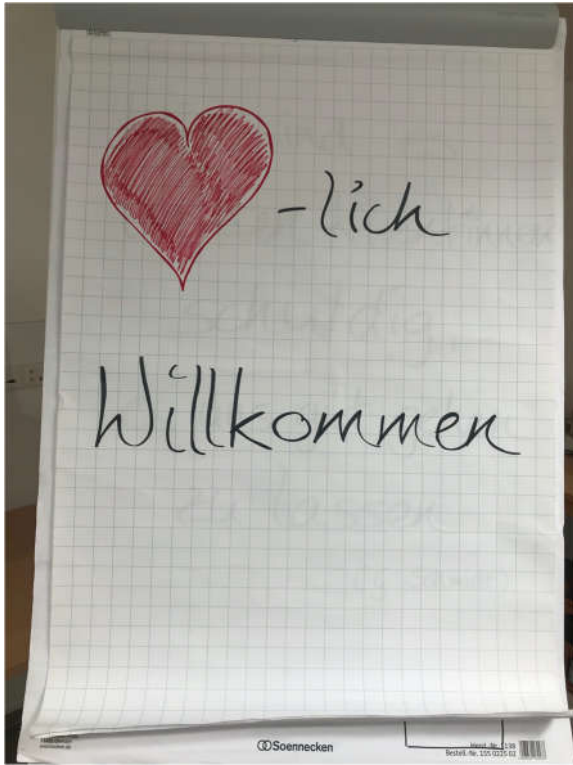 -lich
Willkommen
Soennecken
Bestell.-Nr. 155 0225 02